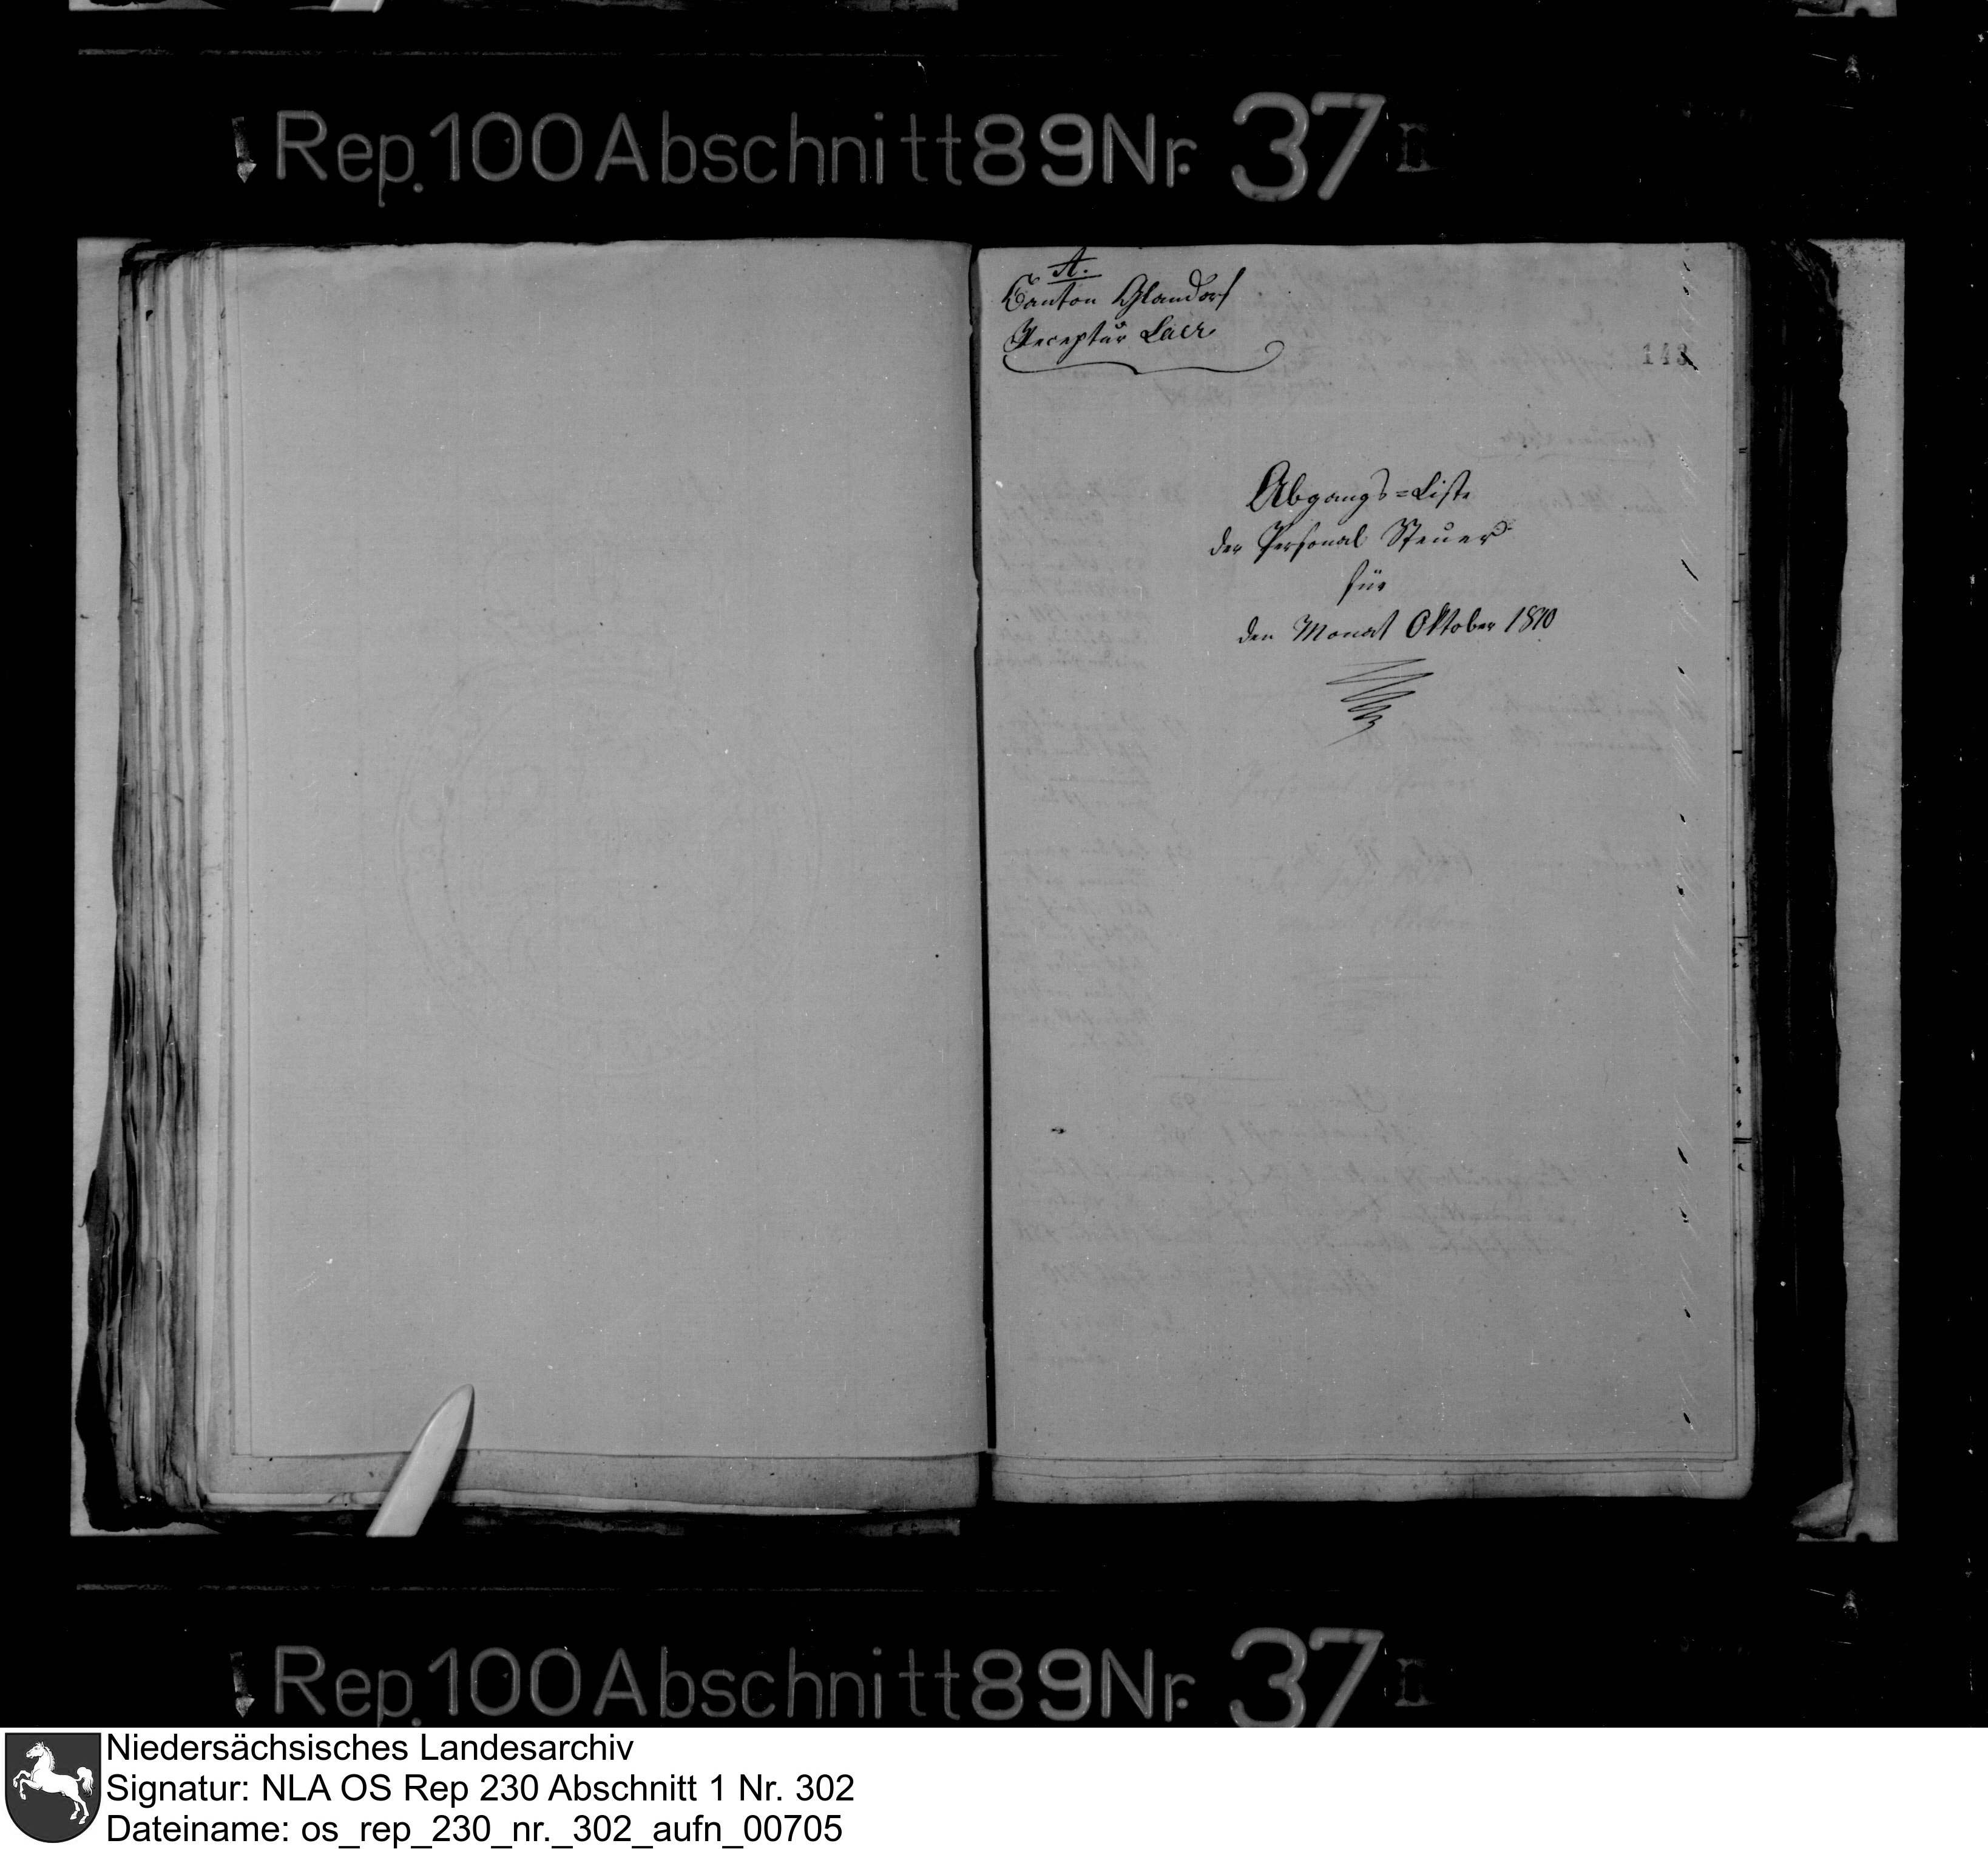 Rep. 100 Abschnitt 89 Nr. 37 II
A.
Canton Glandorf
Receptur Laer
143
Abgangs=Liste
der Personal Steuer
für
den Monat Oktober 1810
Rep. 100 Abschnitt 89 Nr. 37 II
Niedersächsisches Landesarchiv
Signatur: NLA OS Rep 230 Abschnitt 1 Nr. 302
Dateiname: os_rep_230_nr._302_aufn_00705